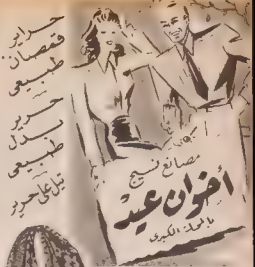 حراير
قمصان
طبيعى
حرير
بدل
طبيعى
تيل على حرير
مصانع نسيج
أخوان عيد
بالمحلة الكبرى